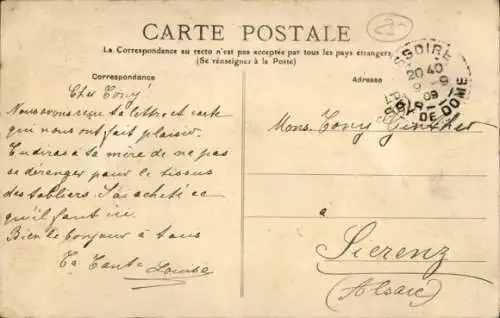 CARTE POSTALE
La Correspondance au recto n'est pas acceptée par tous les pays étrangers
(Se renseigner à la Poste)
Correspondance
Adresse
ISSOIRE
20 40
9 - 9
09
PUY-DE-DOME
Cher Tony
Nous avons reçu ta lettre et carte
qui nous ont fait plaisir.
Tu diras à ta mère de ne pas
se déranger pour le tissus
des tabliers. J'ai acheté ce
qu'il faut ici.
Bien le bonjour à tous
Ta Tante Louise
Mons. Tony
à
Sierenz
(Alsace)